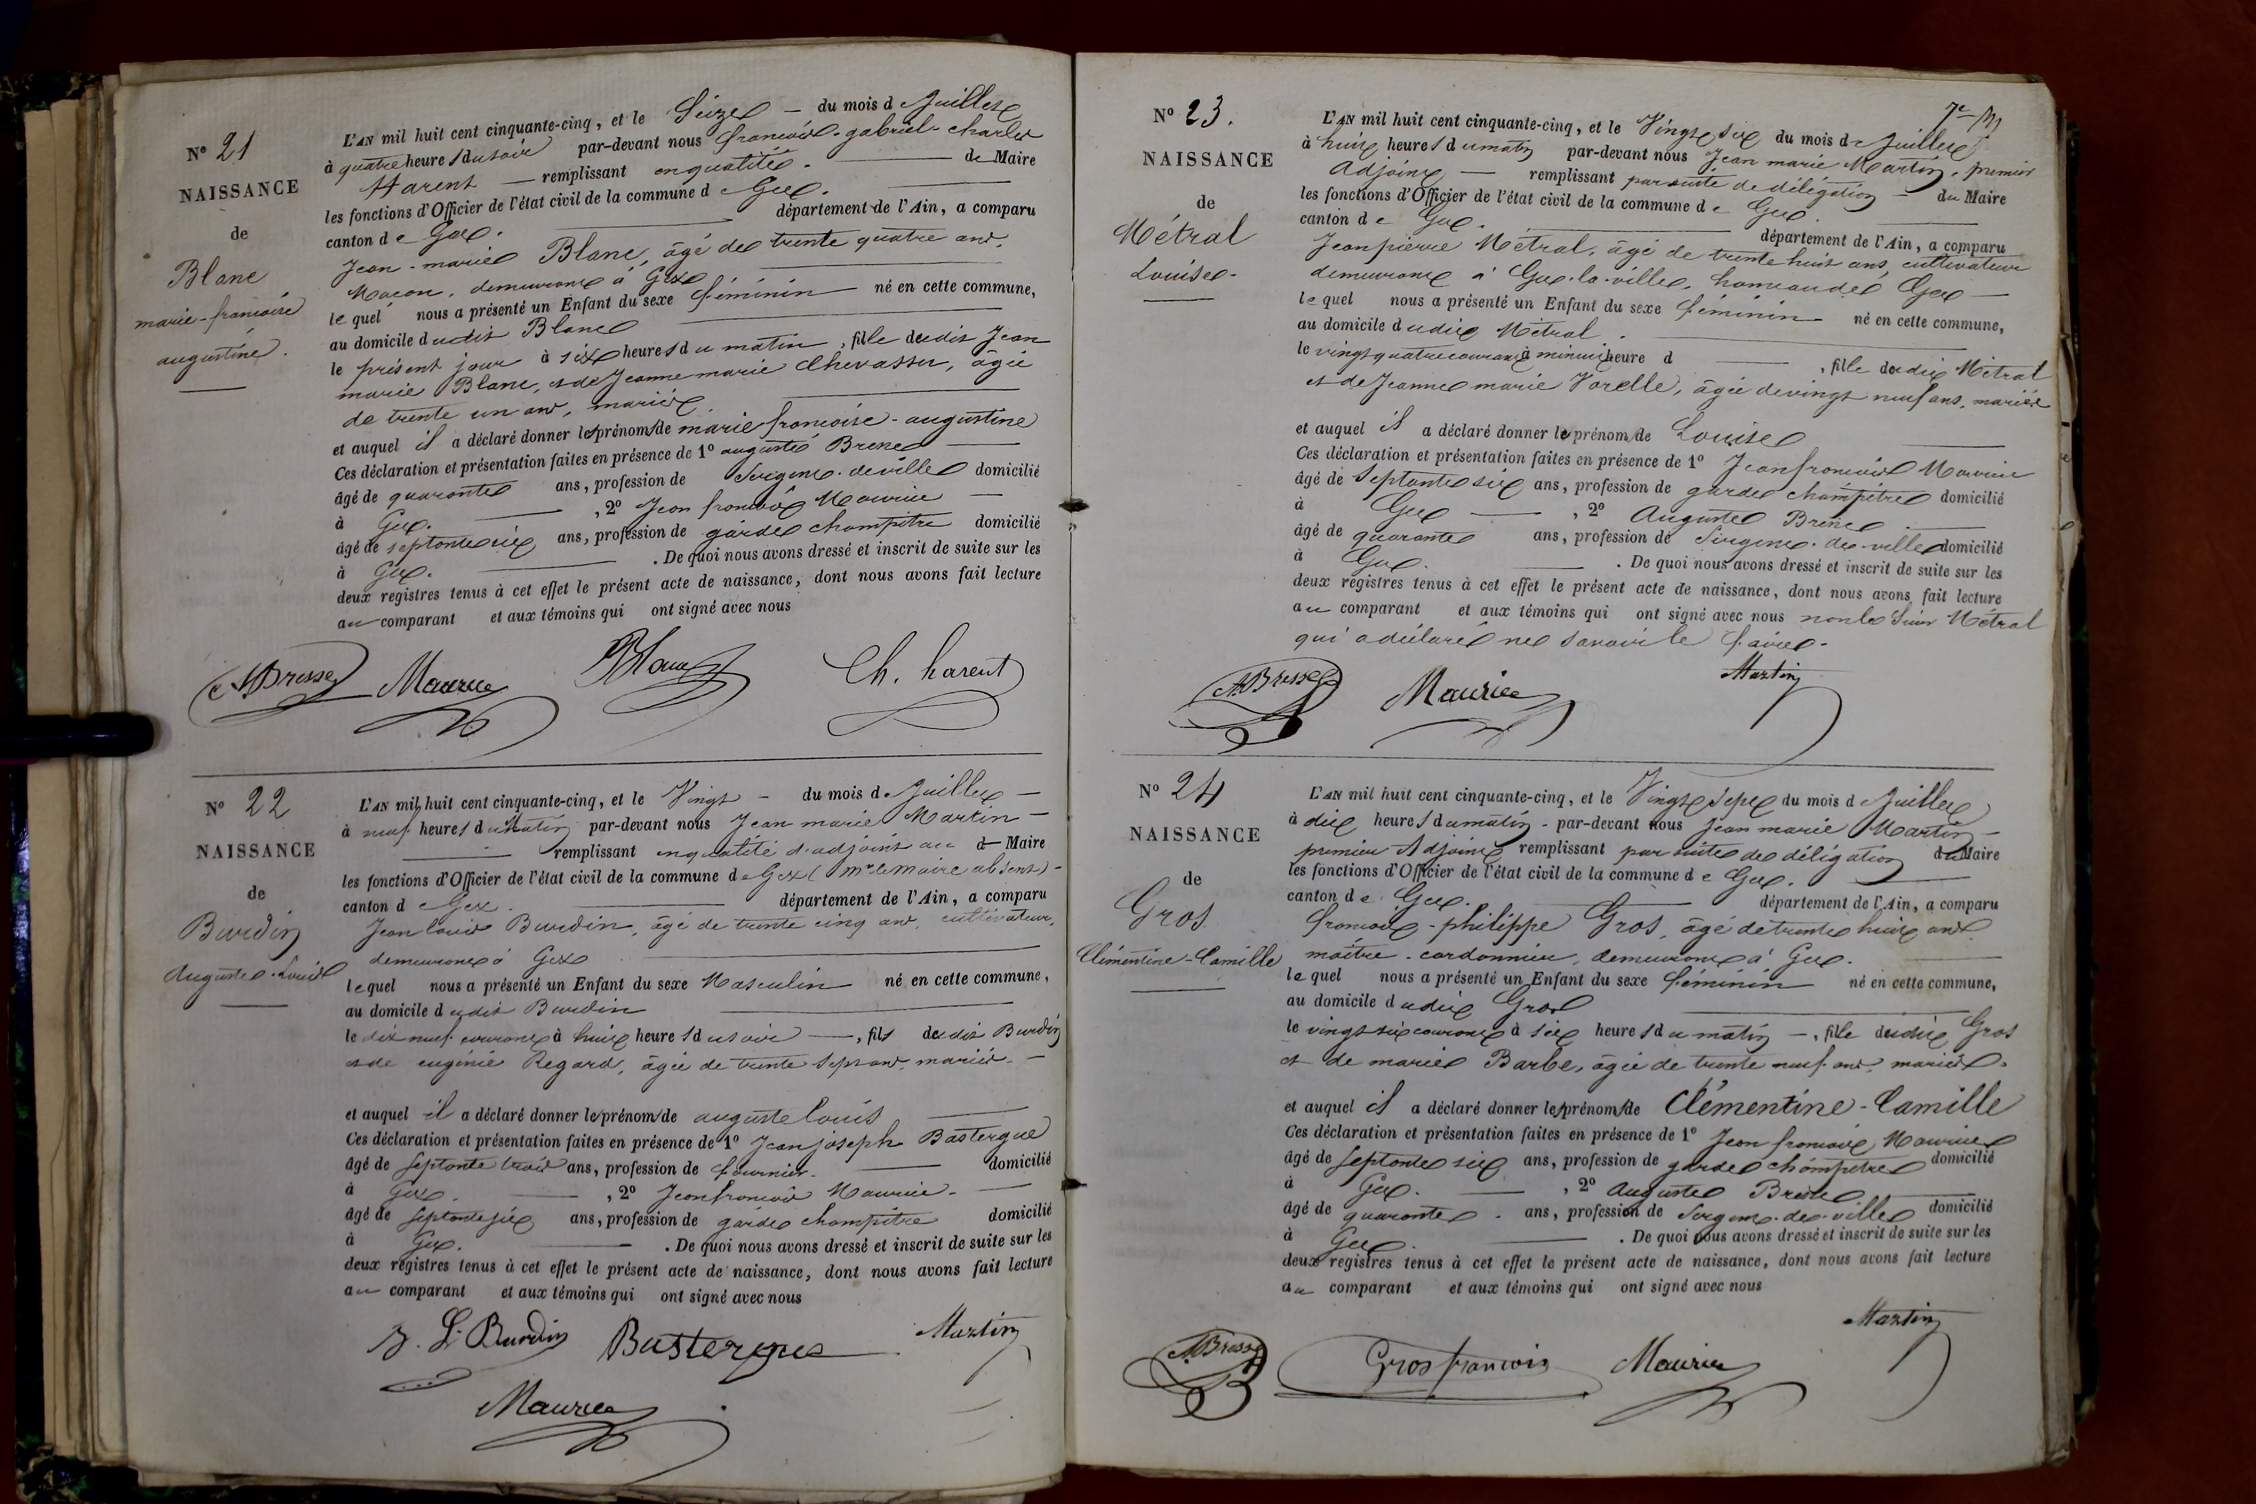 N° 21
NAISSANCE
de
Blanc
marie-françoise
augustine.
L'AN mil huit cent cinquante-cinq, et le Seize - du mois de Juillet
à quatre heures du soir par-devant nous françois-gabriel-charles
Harent — remplissant en qualité. — de Maire
les fonctions d'Officier de l'état civil de la commune de Gex.
canton de Gex. — département de l'Ain, a comparu
Jean-marie Blanc, âgé de trente quatre ans,
Maçon, demeurant à Gex
lequel nous a présenté un Enfant du sexe féminin — né en cette commune,
au domicile dudit Blanc
le présent jour à six heures du matin, fille dudit Jean
marie Blanc, et de Jeanne marie Chevassu, âgée
de trente un ans, mariés
et auquel il a déclaré donner les prénoms de marie françoise-augustine
Ces déclaration et présentation faites en présence de 1° auguste Bresse
âgé de quarante ans, profession de Sergent de ville domicilié
à Gex. — , 2° Jean françois Maurice —
âgé de septante six ans, profession de garde champêtre domicilié
à Gex. — . De quoi nous avons dressé et inscrit de suite sur les
deux registres tenus à cet effet le présent acte de naissance, dont nous avons fait lecture
au comparant et aux témoins qui ont signé avec nous
A. Bresse Maurice Blanc Ch. harent
N° 22
NAISSANCE
de
Burdin
Auguste-Louis
L'AN mil huit cent cinquante-cinq, et le Vingt - du mois de Juillet —
à neuf heures du Matin par-devant nous Jean marie Martin —
— remplissant en qualité d'adjoint au de Maire
les fonctions d'Officier de l'état civil de la commune de Gex (Mr le Maire absent) -
canton de Gex. — département de l'Ain, a comparu
Jean louis Burdin, âgé de trente cinq ans, cultivateur,
demeurant à Gex
lequel nous a présenté un Enfant du sexe Masculin — né en cette commune,
au domicile dudit Burdin
le dix neuf courant à huit heures du soir —, fils dudit Burdin
et de eugénie Regard, âgée de trente sept ans, mariés. —
et auquel il a déclaré donner les prénoms de auguste louis
Ces déclaration et présentation faites en présence de 1° Jean joseph Bastergue
âgé de septante trois ans, profession de fournier. — domicilié
à Gex. — , 2° Jean françois Maurice. —
âgé de septante six ans, profession de garde champêtre domicilié
à Gex. — . De quoi nous avons dressé et inscrit de suite sur les
deux registres tenus à cet effet le présent acte de naissance, dont nous avons fait lecture
au comparant et aux témoins qui ont signé avec nous
J. L. Burdin Bastergue Martin
Maurice
N° 23.
NAISSANCE
de
Métral
Louise-
L'AN mil huit cent cinquante-cinq, et le Vingt six du mois de Juillet
à huit heures du matin par-devant nous Jean marie Martin, premier
Adjoint — remplissant par suite de délégation — du Maire
les fonctions d'Officier de l'état civil de la commune de Gex.
canton de Gex. — département de l'Ain, a comparu
Jean pierre Métral, âgé de trente huit ans, cultivateur
demeurant à Gex-la-ville, hameau de Gex —
lequel nous a présenté un Enfant du sexe féminin — né en cette commune,
au domicile dudit Métral.
le vingt quatre courant à minuit heure d — , fille dudit Métral
et de Jeanne marie Vorelle, âgée de vingt neuf ans, mariés
et auquel il a déclaré donner le prénom de Louise
Ces déclaration et présentation faites en présence de 1° Jean françois Maurice
âgé de Septante six ans, profession de garde champêtre domicilié
à Gex — , 2° Auguste Bresse.
âgé de quarante ans, profession de Sergent-de-ville domicilié
à Gex. — . De quoi nous avons dressé et inscrit de suite sur les
deux registres tenus à cet effet le présent acte de naissance, dont nous avons fait lecture
au comparant et aux témoins qui ont signé avec nous non le Sieur Métral
qui a déclaré ne savoir le faire.
A. Bresse Maurice Martin
N° 24
NAISSANCE
de
Gros
Clémentine-Camille
L'AN mil huit cent cinquante-cinq, et le Vingt Sept du mois de Juillet
à dix heures du matin - par-devant nous Jean marie Martin —
premier Adjoint remplissant par suite de délégation du Maire
les fonctions d'Officier de l'état civil de la commune de Gex.
canton de Gex. — département de l'Ain, a comparu
françois-philippe Gros, âgé de trente huit ans
maître-cordonnier, demeurant à Gex.
lequel nous a présenté un Enfant du sexe féminin né en cette commune,
au domicile dudit Gros
le vingt six courant à six heures du matin —, fille dudit Gros
et de marie Barbe, âgée de trente neuf ans, mariés.
et auquel il a déclaré donner les prénoms de Clémentine-Camille
Ces déclaration et présentation faites en présence de 1° Jean françois Maurice
âgé de Septante six ans, profession de garde champêtre domicilié
à Gex. — , 2° Auguste Bresse
âgé de quarante. ans, profession de Sergent-de-ville domicilié
à Gex. — . De quoi nous avons dressé et inscrit de suite sur les
deux registres tenus à cet effet le présent acte de naissance, dont nous avons fait lecture
au comparant et aux témoins qui ont signé avec nous
A. Bresse Gros françois Maurice Martin